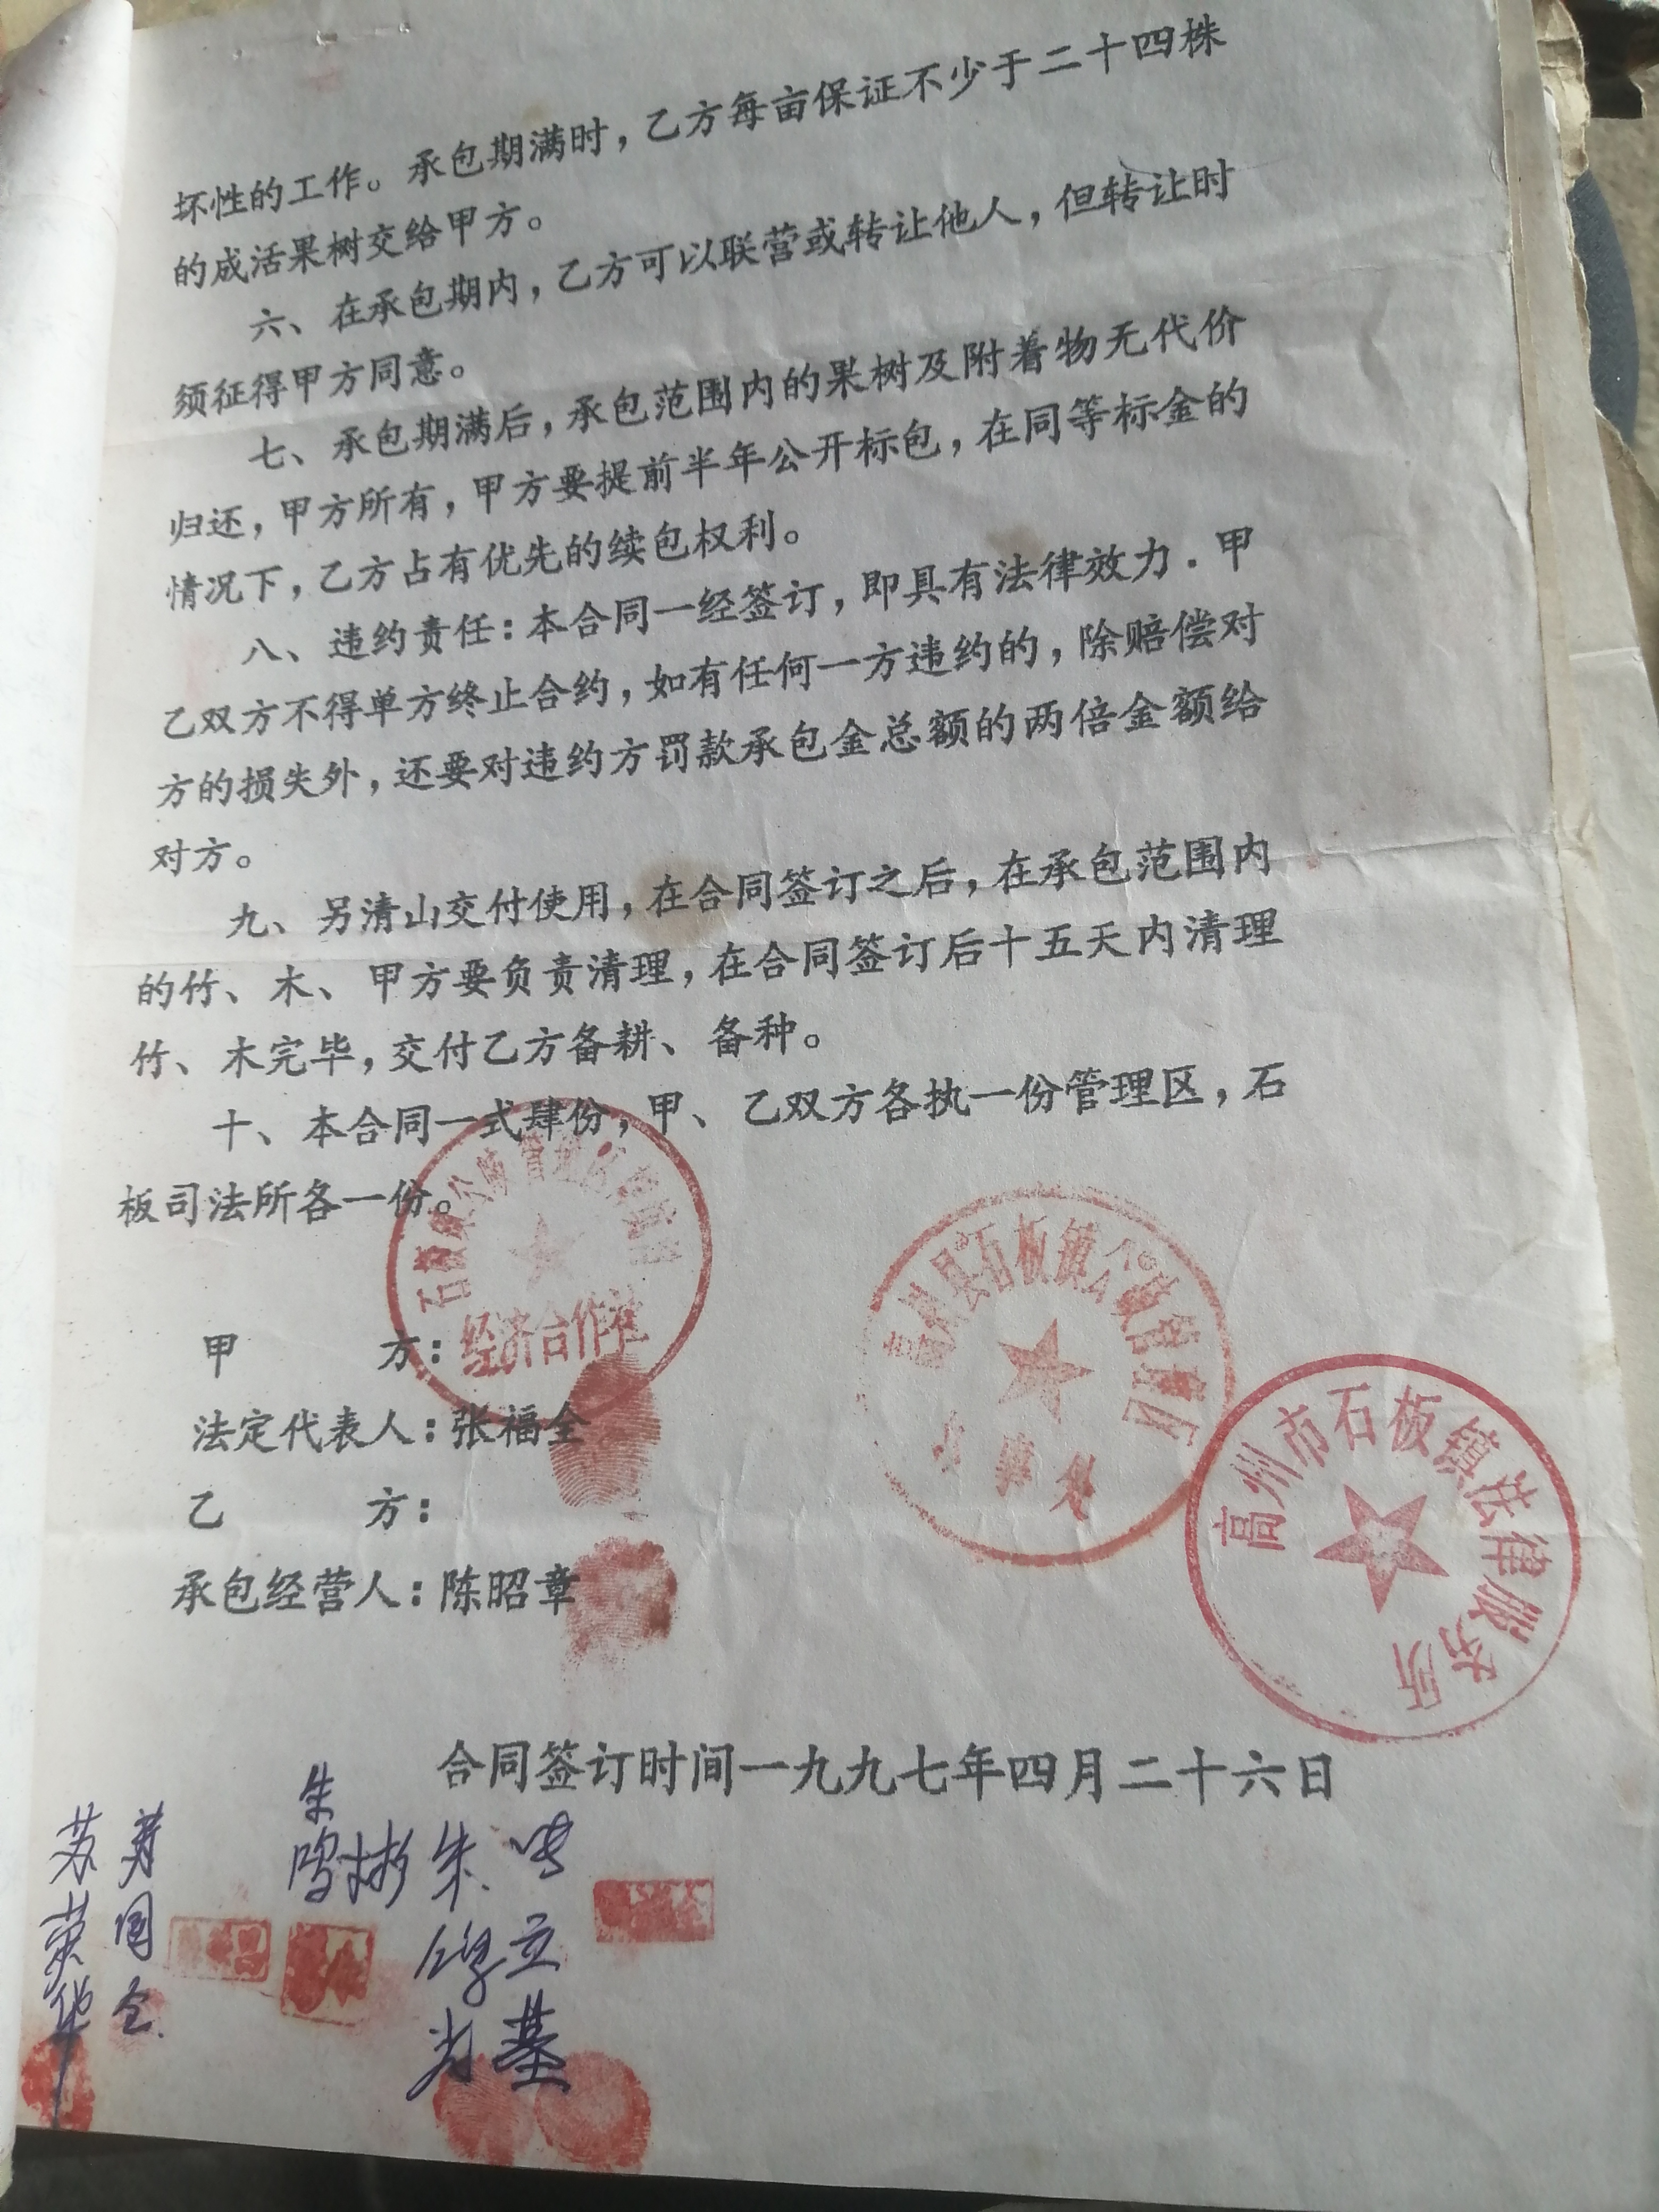 坏性的工作。承包期满时，乙方每亩保证不少于二十四株
的成活果树交给甲方。
六、在承包期内，乙方可以联营或转让他人，但转让时
须征得甲方同意。
七、承包期满后，承包范围内的果树及附着物无代价
归还，甲方所有，甲方要提前半年公开标包，在同等标金的
情况下，乙方占有优先的续包权利。
八、违约责任：本合同一经签订，即具有法律效力．甲
乙双方不得单方终止合约，如有任何一方违约的，除赔偿对
方的损失外，还要对违约方罚款承包金总额的两倍金额给
对方。
九、另清山交付使用，在合同签订之后，在承包范围内
的竹、木、甲方要负责清理，在合同签订后十五天内清理
竹、木完毕，交付乙方备耕、备种。
十、本合同一式肆份，甲、乙双方各执一份管理区，石
板司法所各一份。
经济合作社
高州市石板镇法律服务所
甲方：
法定代表人：张福全
乙方：
承包经营人：陈昭章
合同签订时间一九九七年四月二十六日
苏荣华
朱